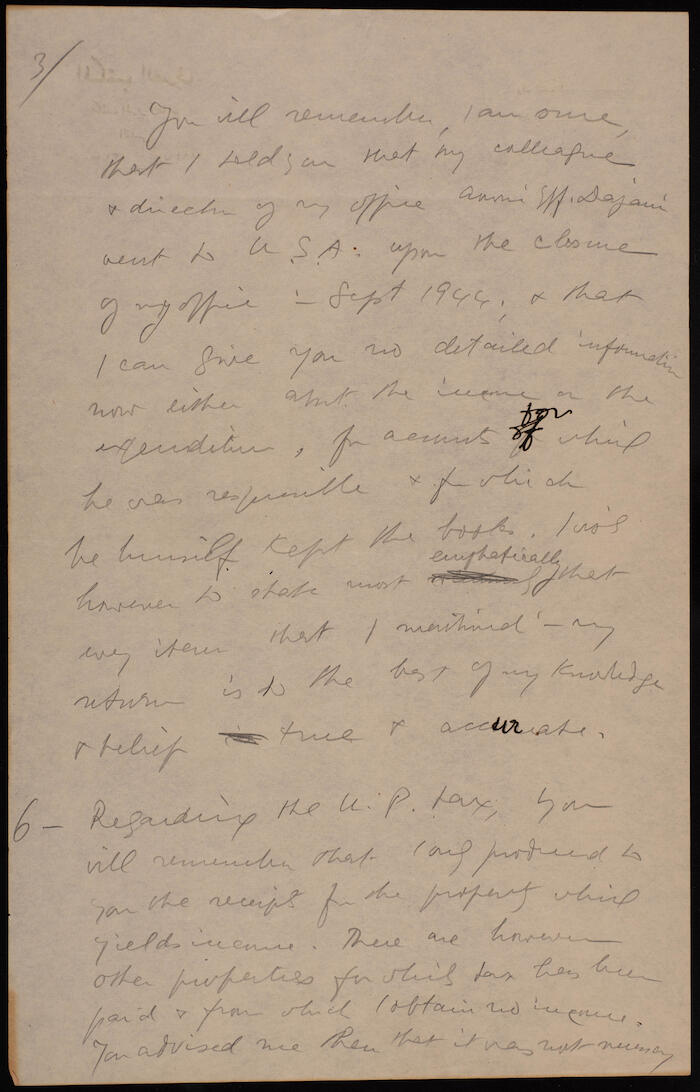 3/
You will remember, I am sure,
that I told you that my colleague
& director of my office Awni Eff. Dajani
went to U.S.A. upon the closure
of my office in Sept 1944, & that
I can give you no detailed information
now either abt. the income or the
expenditure, for accounts for which
he was responsible & for which
he himself kept the books. I wish
however to state most emphatically that
every item that I mentioned in my
return is to the best of my knowledge
& belief true & accurate.
6 - Regarding the U.P. tax, you
will remember that I only produced to
you the receipts for the property which
yields income. There are however
other properties for which tax has been
paid & from which I obtain no income.
You advised me then that it was not necessary